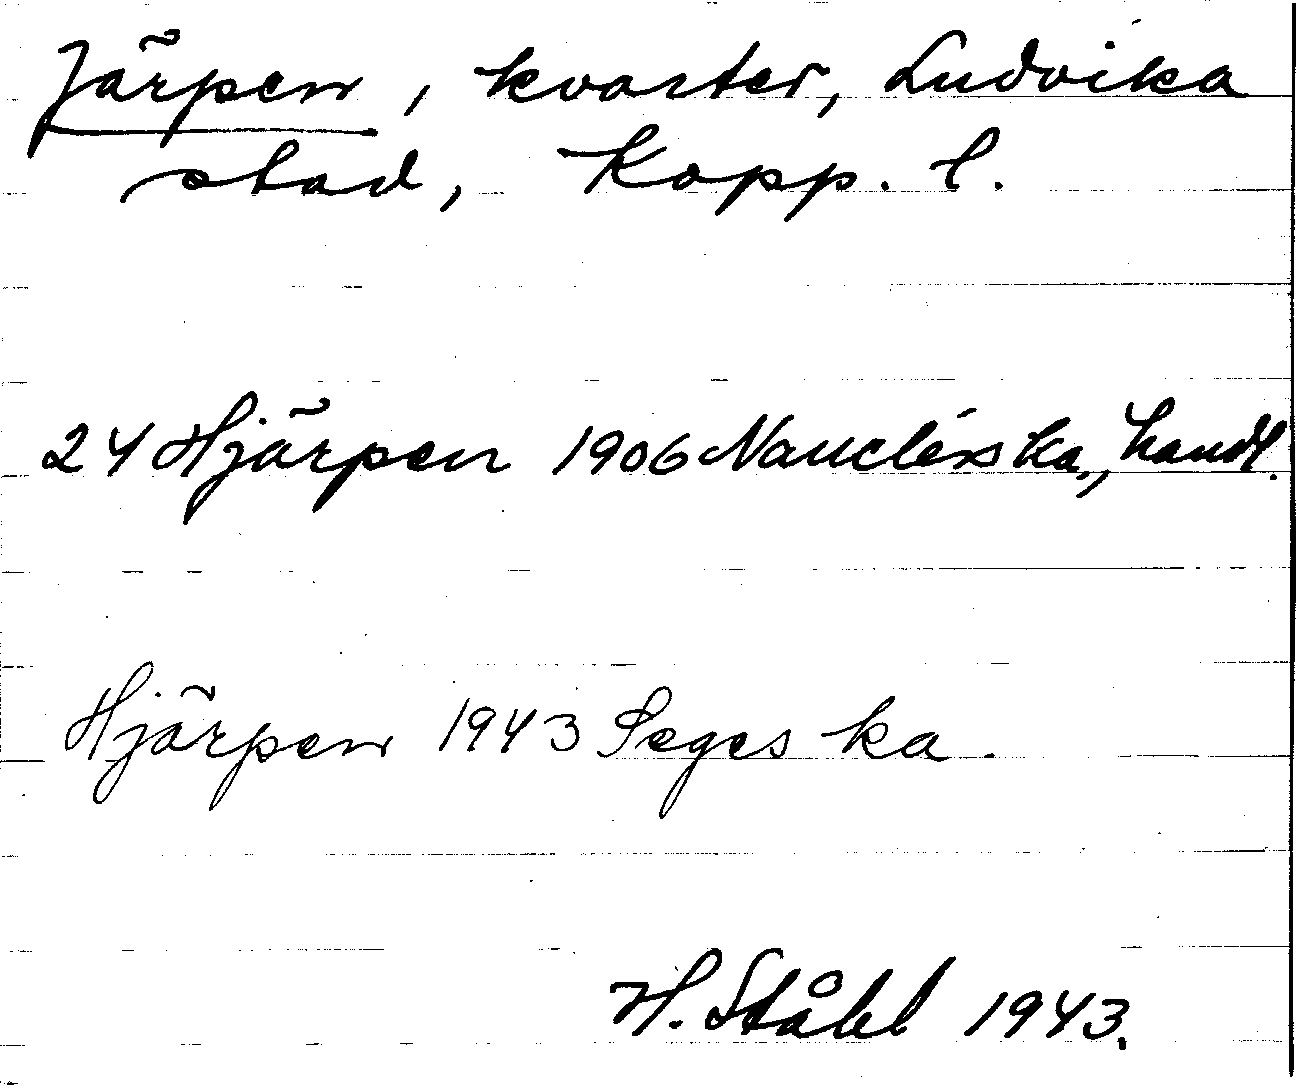 Järpen, kvarter, Ludvika
stad, Kopp. l.
24 Hjärpen 1906 Nauclérs ka., handl.
Hjärpen 1943 Seges ka.
H. Ståhl 1943.